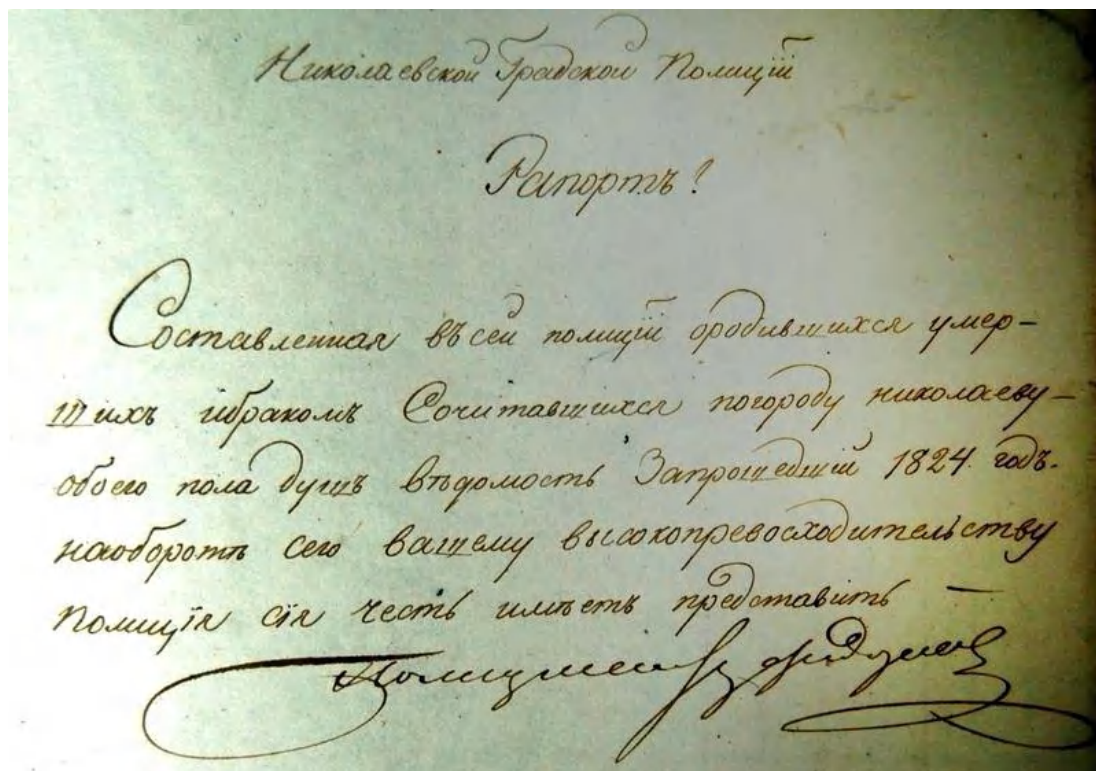 Николаевской Градской Полиціи
Рапортъ!
Составленная въ сей полиціи ородившихся умер-
шихъ ибракомъ Сочитавшихся погороду николаеву-
обоего пола душъ вѣдомость Запрошедшій 1824. годъ.
наоборотѣ сего вашему высокопревосходительству
Полиція сія честь имѣетъ представить —
Полицмейстеръ